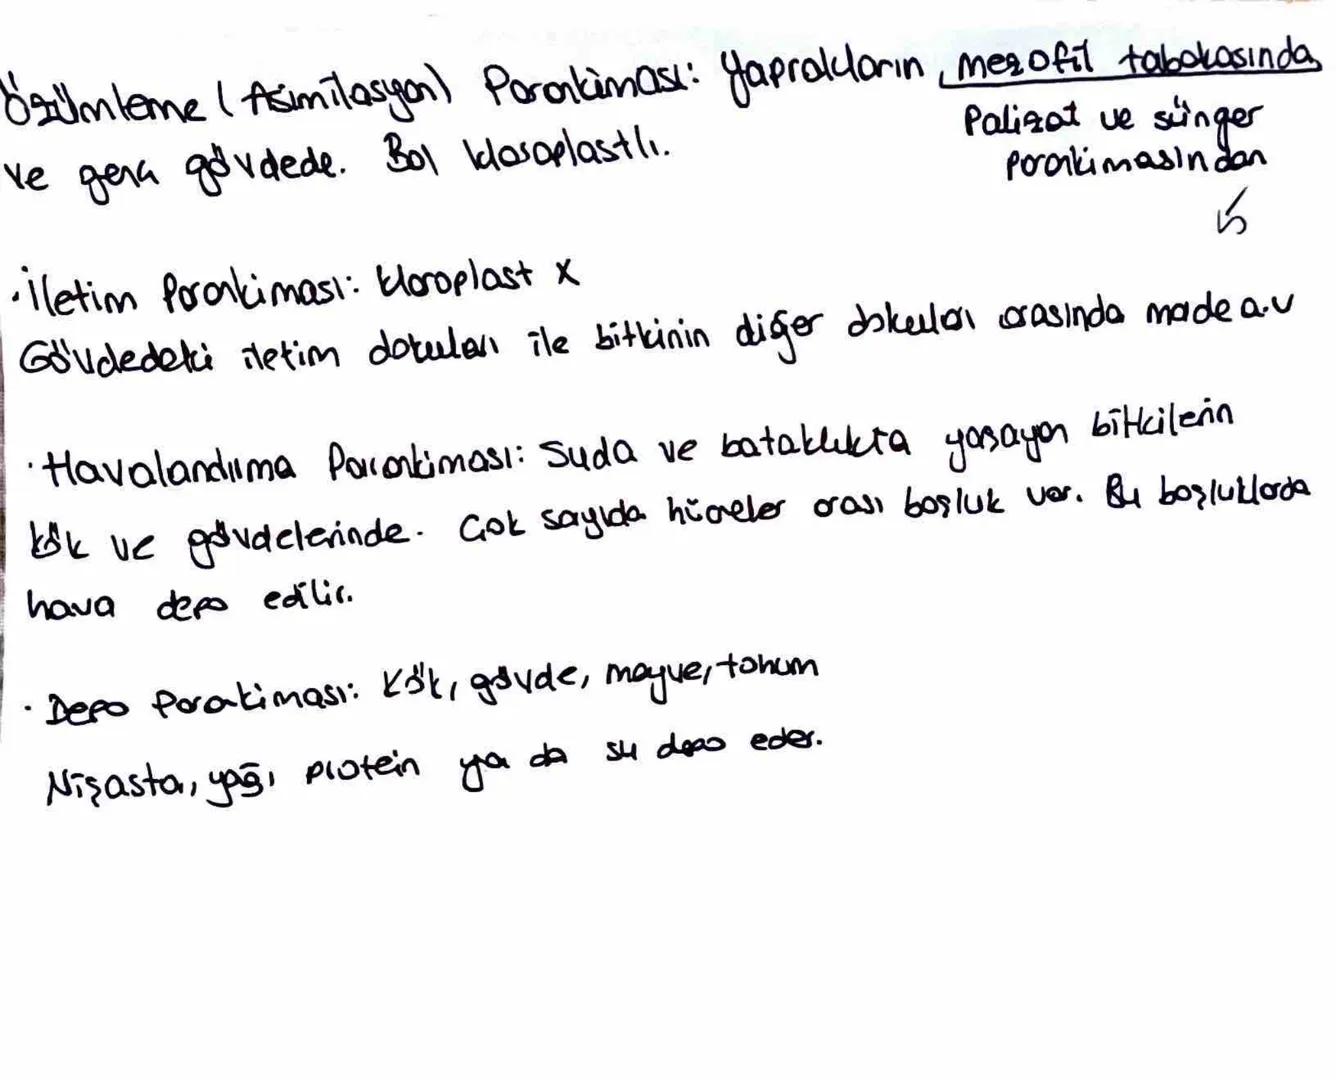 Özümleme (Asimilasyon) Parankiması: Yaprakların mezofil tabakasında
Palizat ve sünger
parankimasından
ve genç gövdede. Bol kloroplastlı.
·İletim Parankiması: kloroplast x
Gövdedeki iletim dokuları ile bitkinin diğer dokuları arasında madde a.v
·Havalandırma Parankiması: Suda ve bataklıkta yaşayan bitkilerin
kök ve gövdelerinde. Çok sayıda hücreler arası boşluk var. Bu boşluklarda
hava depo edilir.
· Depo Parankiması: Kök, gövde, meyve, tohum
Nişasta, yağ, protein ya da su depo eder.